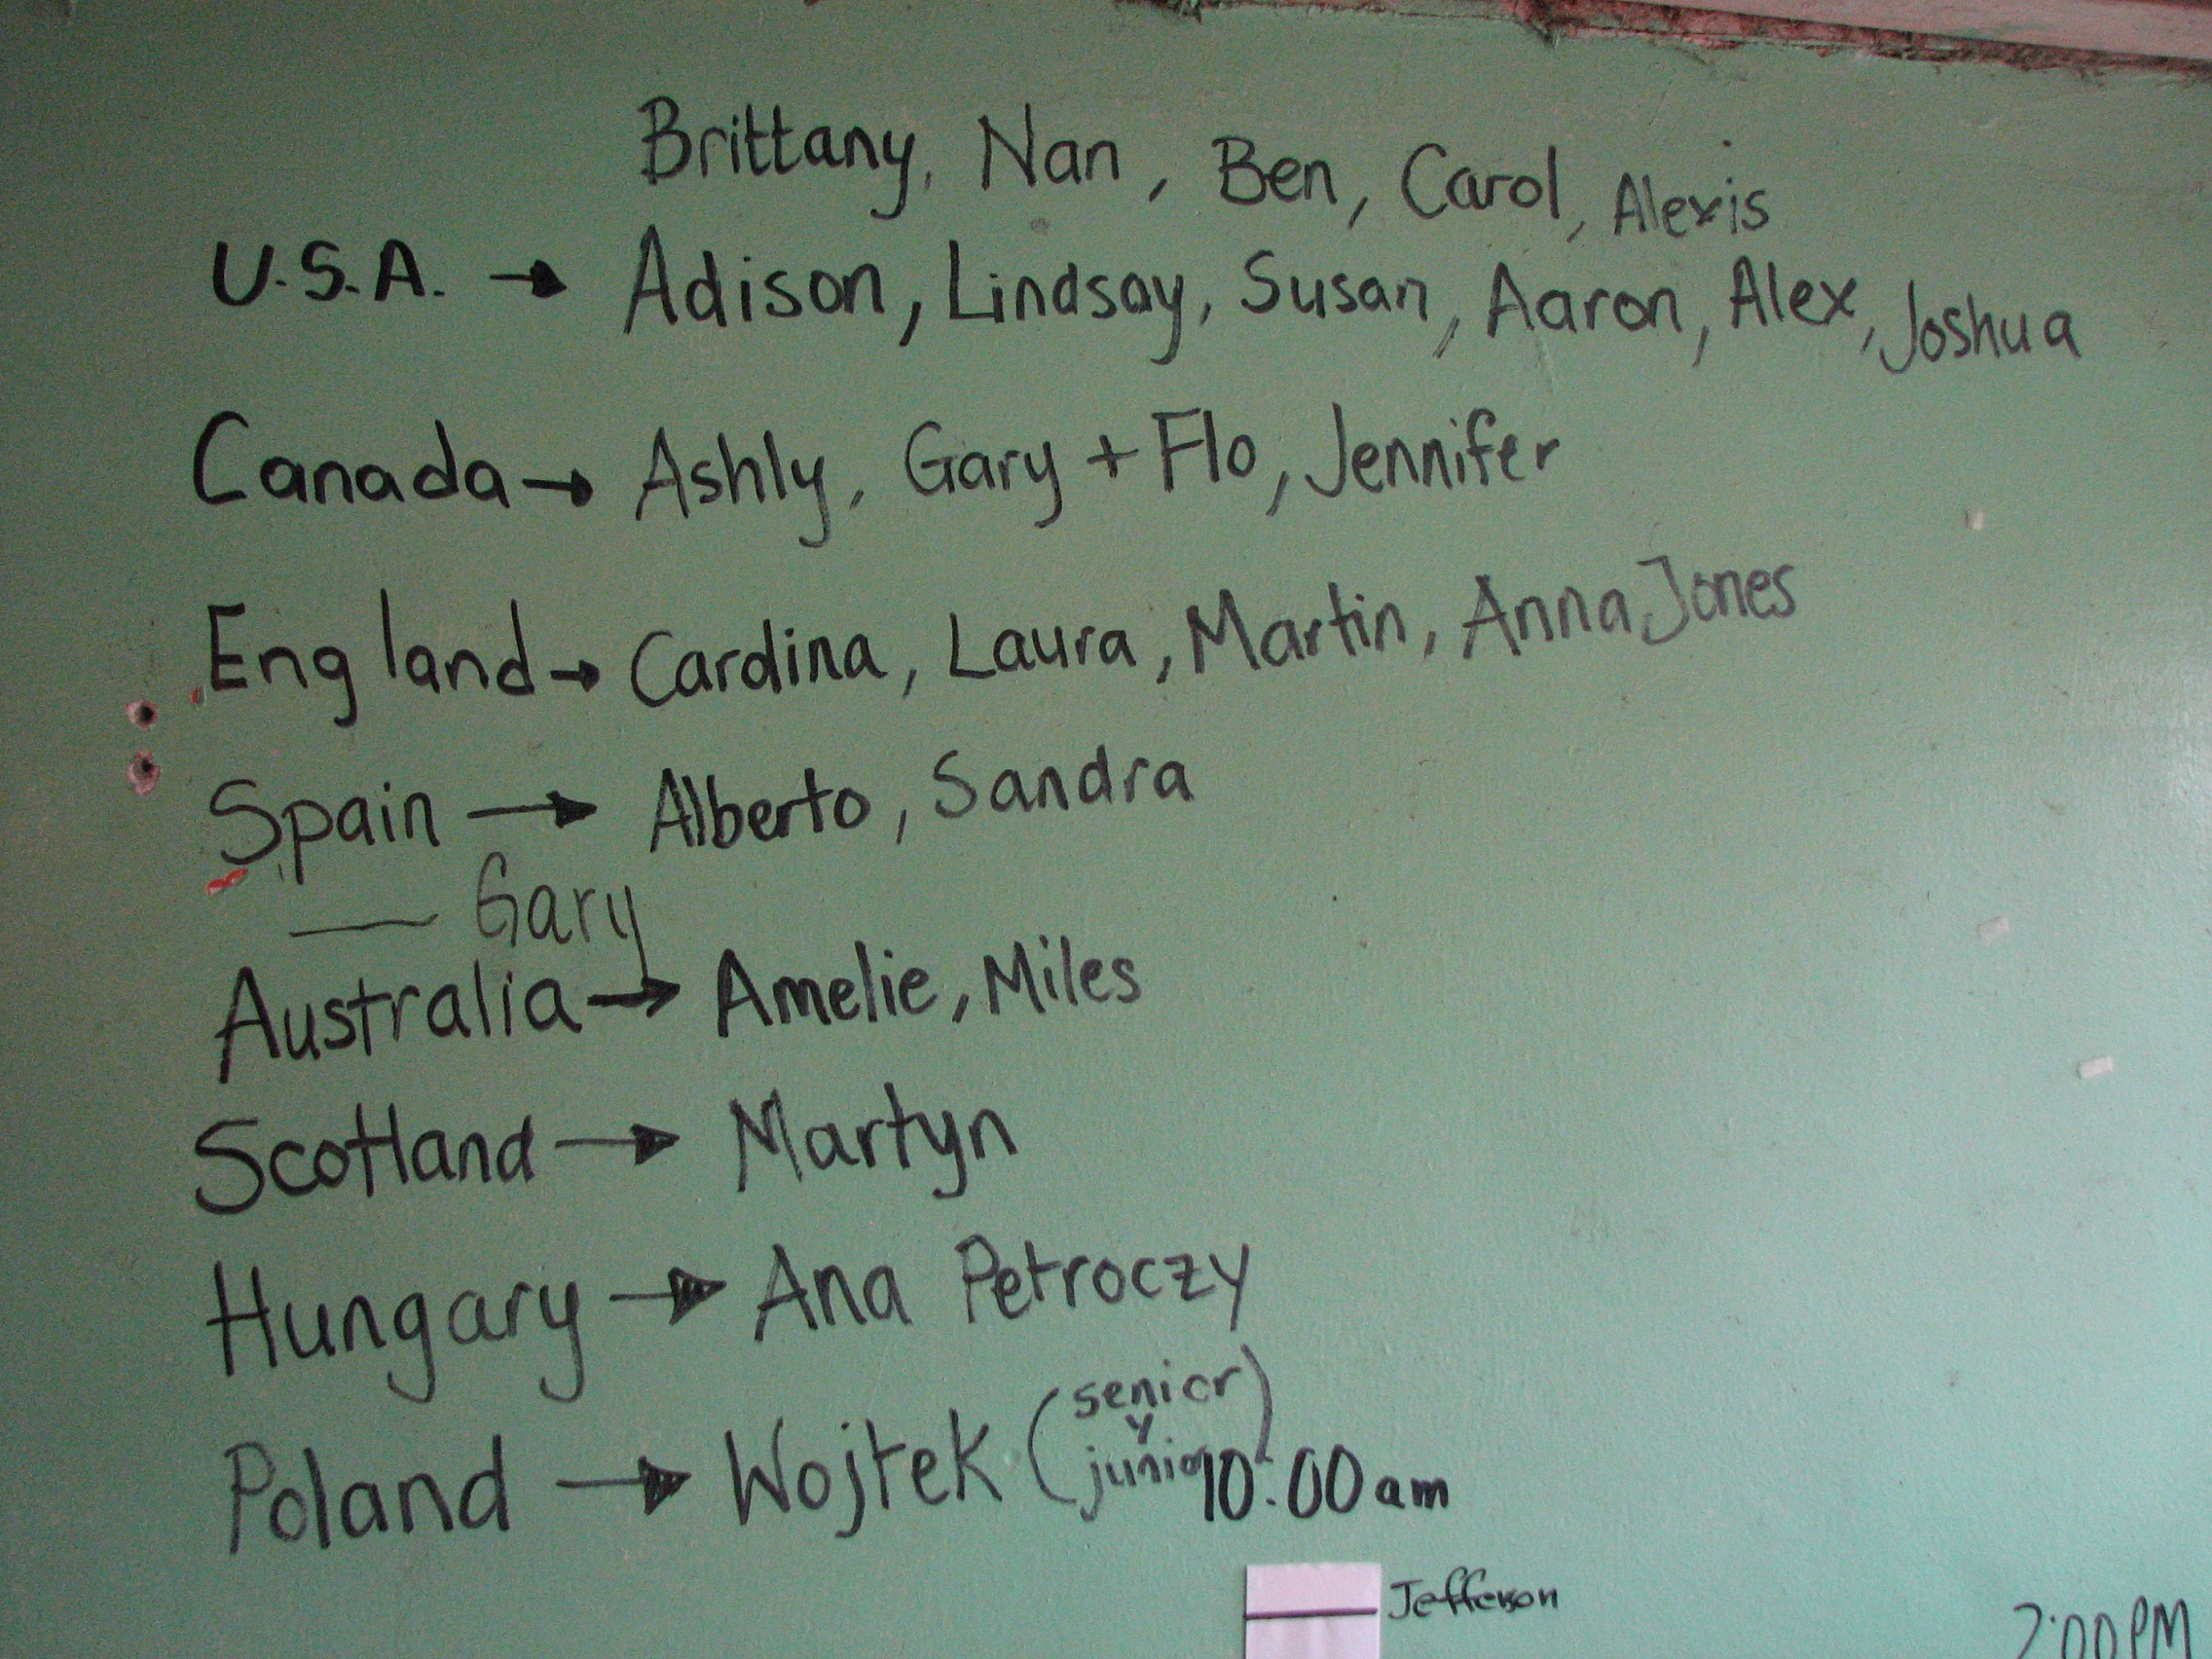 Brittany, Nan, Ben, Carol, Alexis
U.S.A. → Adison, Lindsay, Susan, Aaron, Alex, Joshua
Canada → Ashly, Gary + Flo, Jennifer
England → Cardina, Laura, Martin, Anna Jones
Spain → Alberto, Sandra
— Gary
Australia → Amelie, Miles
Scotland → Martyn
Hungary → Ana Petroczy
Poland → Wojtek (senior
y
junior) 10:00 am
Jefferson
2:00 PM